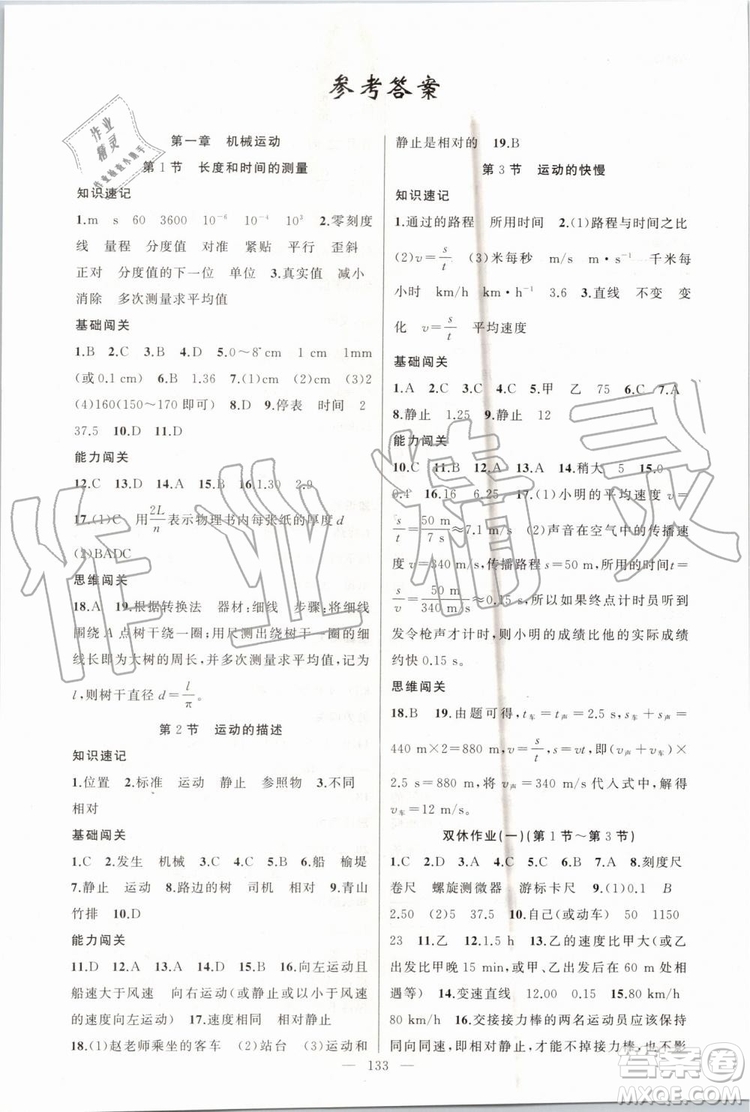 参考答案
第一章 机械运动
第1节 长度和时间的测量
知识速记
1.m s 60 3600 10⁻⁶ 10⁻⁴ 10² 2.零刻度
线 量程 分度值 对准 紧贴 平行 歪斜
正对 分度值的下一位 单位 3.真实值 减小
消除 多次测量求平均值
基础闯关
1.B 2.C 3.B 4.D 5.0～8 cm 1 cm 1mm
(或0.1 cm) 6.B 1.36 7.D 8.(2)cm (3)2
(4)160(150～170即可) 9.停表 时间 2
37.5 10.D 11.D
能力闯关
12.C 13.D 14.A 15.B 16.1.30 2.9
17.(1)C 用2L/n表示物理书内每张纸的厚度d
(2)BADC
思维闯关
18.A 19.根据转换法 器材:细线 步骤:将细线
围绕A点树干绕一圈;用尺测出绕树干一圈的细
线长即为大树的周长,并多次测量求平均值,记为
l,则树干直径d=l/π。
第2节 运动的描述
知识速记
1.位置 2.标准 运动 静止 参照物 3.不同
相对
基础闯关
1.C 2.发生 机械 3.C 4.C 5.B 6.船 榆堤
7.静止 运动 8.路边的树 司机 9.青山
竹排 10.D
能力闯关
11.D 12.A 13.A 14.D 15.B 16.向左运动且
船速大于风速 向右运动(或静止或向左小于风速
的速度向左运动) 17.B
18.(1)赵老师乘坐的客车 (2)站台 (3)运动和
静止是相对的 19.B
第3节 运动的快慢
知识速记
1.通过的路程 所用时间 2.(1)路程与时间之比
(2)v=s/t (3)米每秒 m/s m·s⁻¹ 千米每
小时 km/h km·h⁻¹ 3.6 3.直线 不变 变
化 v=s/t 平均速度
基础闯关
1.A 2.C 3.C 4.C 5.甲 乙 75 6.B 7.A
8.静止 1.25 9.静止 12
能力闯关
10.C 11.B 12.A 13.A 14.稍大 5 15.0
0.4 16.16 6.25 17.(1)小明的平均速度v=
s/t=50 m/7 s≈7.1 m/s (2)声音在空气中的传播
速度v=340 m/s,传播路程s=50 m,所用时间t=
s/v=50 m/340 m/s≈0.15 s,所以如果终点计时员听到
发令枪声才计时,则小明的成绩比他的实际成绩
约快0.15 s。
思维闯关
18.B 19.由题可得,t车=t声=2.5 s,s车+s声=
440 m×2=880 m,由v=s/t得:s=vt,即(v声+v车)×
2.5 s=880 m,将v声=340 m/s代入式中,解得
v车=12 m/s。
双休作业(一)(第1节～第3节)
1.C 2.A 3.D 4.D 5.B 6.C 7.B 8.刻度尺
卷尺 螺旋测微器 游标卡尺 9.(1)0.1 B
2.50 (2)5 37.5 10.自己(或动车) 50 1150
23 11.乙 12.1.5 h 13.乙的速度比甲大(或乙
出发时比甲晚15 min,或甲、乙在出发后在60 m处相
遇等) 14.变速直线 12.00 0.2 15.80 km/h
80 km/h 16.交接接力棒的两名运动员应该保持
同向同速,才能不容易掉棒,也不影
133